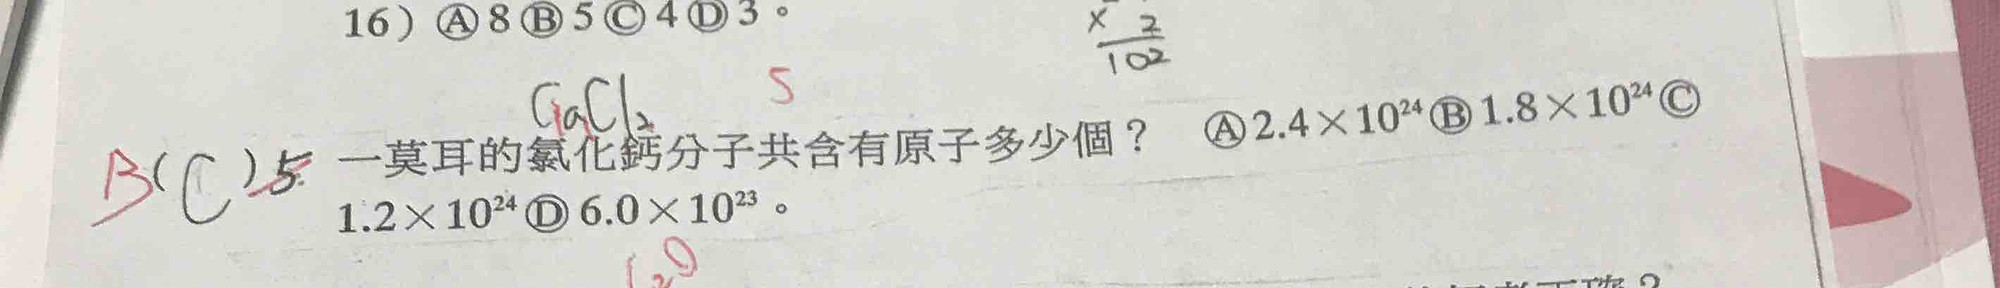 16）Ⓐ8Ⓑ5Ⓒ4Ⓓ3。
× 2
102
CaCl₂
5
B(C)5. 一莫耳的氯化鈣分子共含有原子多少個？ Ⓐ2.4×10²⁴Ⓑ1.8×10²⁴Ⓒ
1.2×10²⁴Ⓓ6.0×10²³。